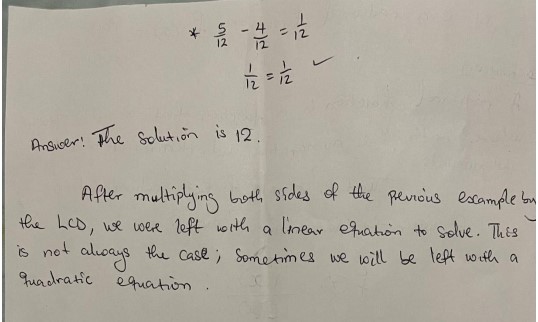 * 5/12 - 4/12 = 1/12
1/12 = 1/12 ✓
Answer: The solution is 12.
After multiplying both sides of the pervious example by
the LCD, we were left with a linear equation to solve. This
is not always the case; sometimes we will be left with a
quadratic equation.